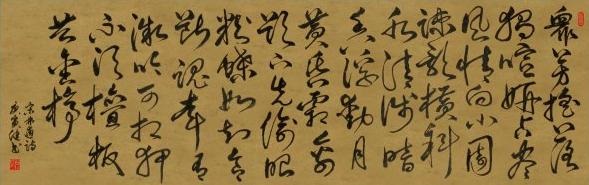 眾芳搖落
獨暄妍占盡
風情向小園
疎影橫斜
水清淺暗
香浮動月
黃昏霜禽
欲下先偷眼
粉蝶如知合
斷魂幸有
微吟可相狎
不須檀板
共金樽
宋林逋詩